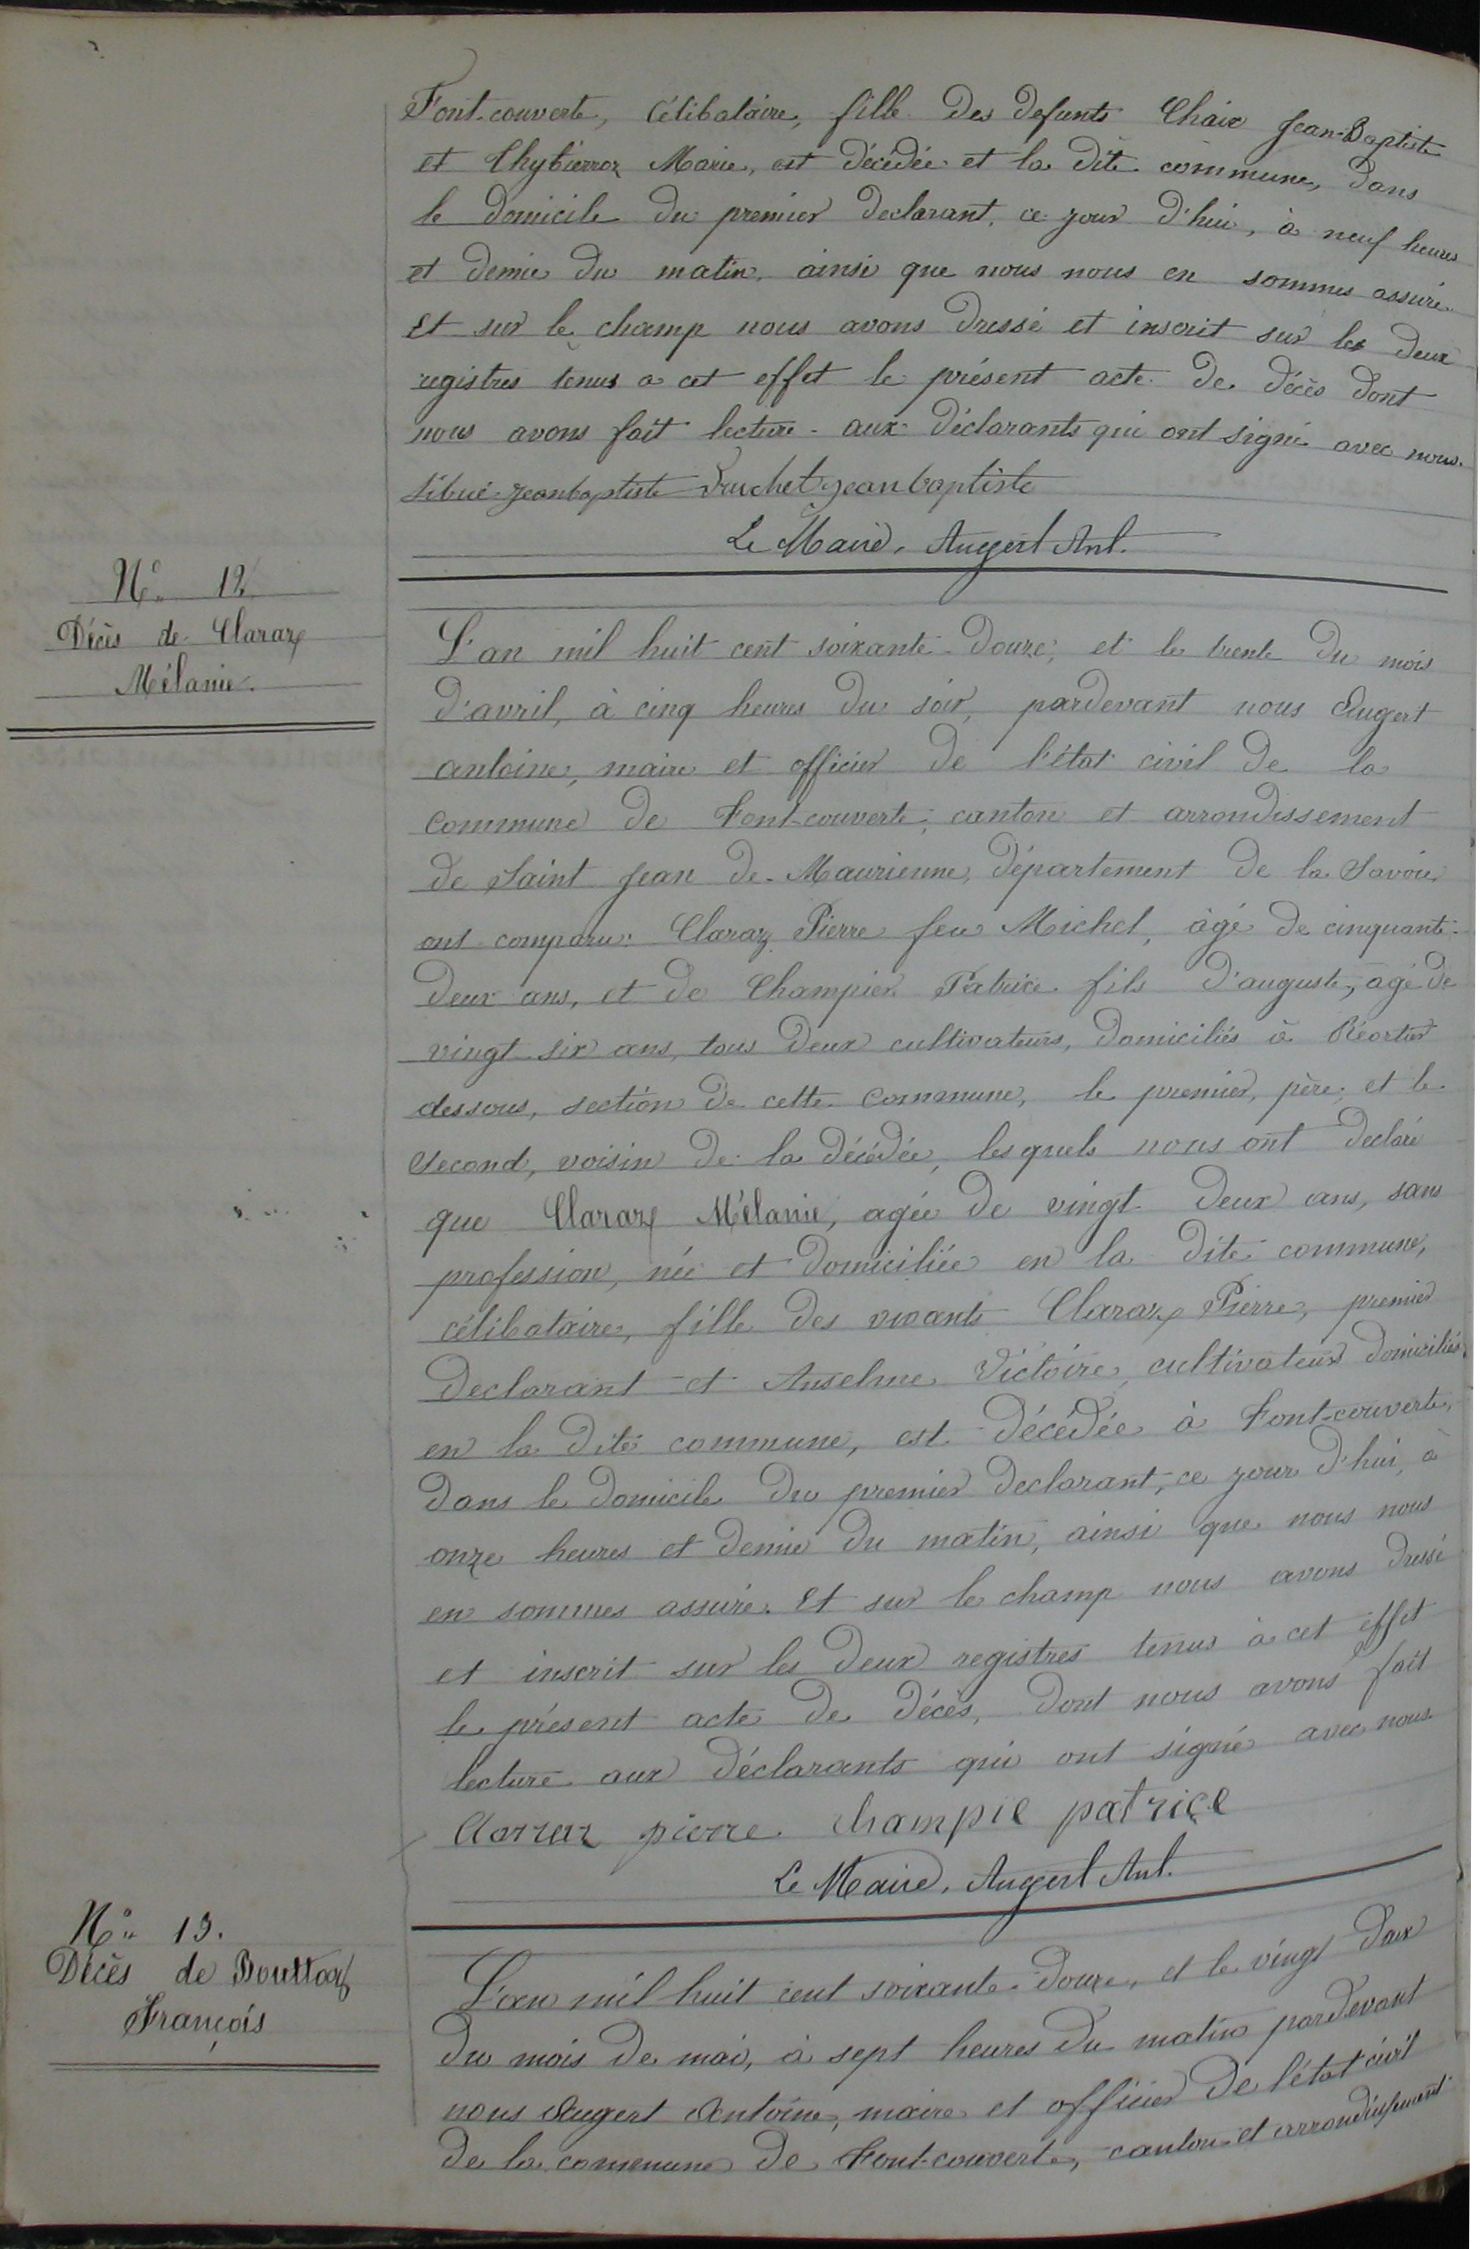 Font-couverte, Célibataire, fille des defunts Chaix Jean-Baptiste
et Marie, est décédée et la dite commune, dans
le domicile du premier declarant, ce jour d'hui, à neuf heures
et demie du matin, ainsi que nous nous en sommes assuré.
Et sur le champ nous avons dressé et inscrit sur les deux
registres tenus a cet effet le présent acte de décès dont
nous avons fait lecture aux déclarants qui ont signé avec nous.
Sibué jeanbaptiste Druchet jean baptiste
Le Maire, Augert Ant.
N° 12
Décès de Claraz
Mélanie.
L'an mil huit cent soixante-douze, et le trente du mois
d'avril, à cinq heures du soir, pardevant nous Augert
antoine, maire et officier de l'état civil de la
commune de Font-couverte, canton et arrondissement
de Saint Jean de Maurienne, département de la Savoie
ont comparu: Claraz Pierre feu Michel, âgé de cinquante-
deux ans, et de Champier Patrice fils d'auguste, agé de
vingt six ans, tous deux cultivateurs, domiciliés à Réortier
dessous, section de cette commune, le premier, père, et le
second, voisin de la décédée, lesquels nous ont declaré
que Claraz Mélanie, agée de vingt deux ans, sans
profession, née et domiciliée en la dite commune,
célibataire, fille des vivants Claraz Pierre, premier
declarant et Anselme Victoire, cultivateurs domiciliés
en la dite commune, est décédée à Font-couverte,
dans le domicile du premier declarant, ce jour d'hui, à
onze heures et demie du matin, ainsi que nous nous
en sommes assuré. Et sur le champ nous avons dressé
et inscrit sur les deux registres tenus à cet effet
le présent acte de décès, dont nous avons fait
lecture aux déclarants qui ont signé avec nous.
Clarraz pierre. champie patrice
Le Maire, Augert Ant.
N° 13.
Décès de Bouttaz
François
L'an mil huit cent soixante-douze, et le vingt deux
du mois de mai, à sept heures du matin pardevant
nous Augert Antoine, maire et officier de l'état civil
de la commune de Font-couverte, canton et arrondissement